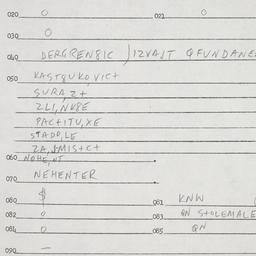 020 O 021 O
030 O
040 DERGRENSIC JIZVAJT QFUNDANE
050 KASTQUKO, VIC+
SURA, Z+
ZLI, NKSE
PAC+ITU, XE
STADO, LE
ZA, JMIS+C+
060 NOHE, NT
070 NEHENTER
080 $ 081 KNW
082 O 083 QN S+OLEMALE
084 O 085 QN
090 —